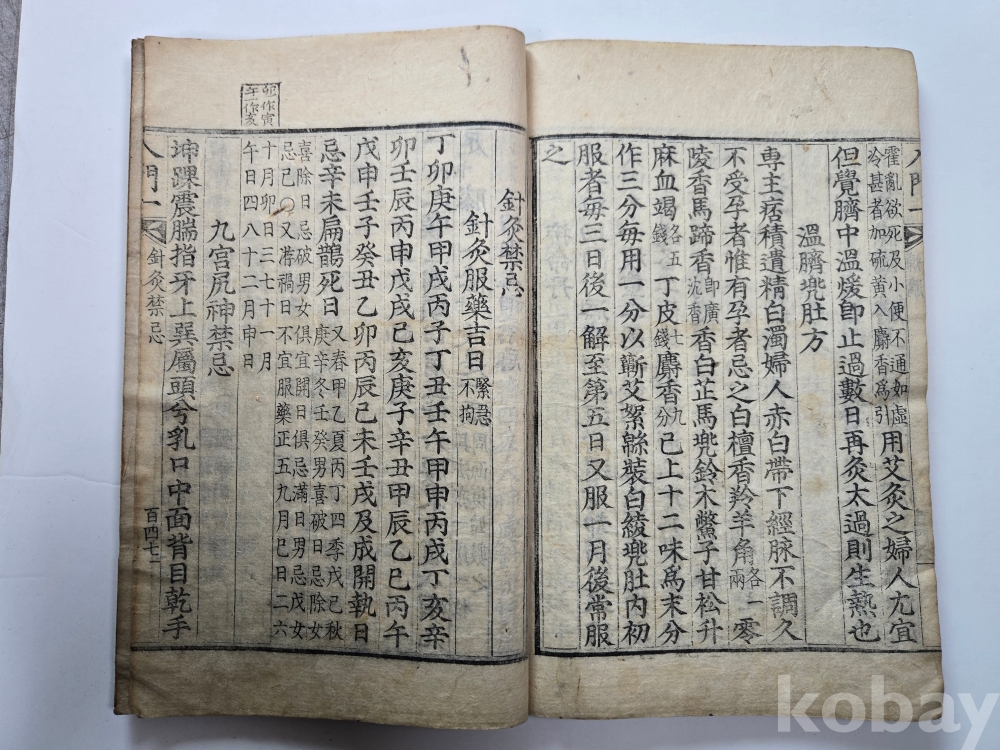 霍亂欲死及小便不通如虛
冷甚者加硫黄入麝香爲引
用艾灸之婦人尤宜
但覺臍中溫煖卽止過數日再灸太過則生熱也
溫臍兠肚方
專主痞積遺精白濁婦人赤白帶下經脉不調久
不受孕者惟有孕者忌之白檀香羚羊角各一兩零
陵香馬蹄香卽廣沈香香白芷馬兠鈴木鱉子甘松升
麻血竭各五錢丁皮七錢麝香九分已上十二味爲末分
作三分每用一分以蘄艾絮緜裝白綾兠肚內初
服者每三日後一解至第五日又服一月後常服
之
針灸禁忌
針灸服藥吉日緊急不拘
丁卯庚午甲戌丙子丁丑壬午甲申丙戌丁亥辛
卯壬辰丙申戊戌己亥庚子辛丑甲辰乙巳丙午
戊申壬子癸丑乙卯丙辰己未壬戌及成開執日
忌辛未扁鵲死日
又春甲乙夏丙丁四季戊己秋
庚辛冬壬癸男喜破日忌除女
喜除日忌破男女俱宜開日俱忌滿日男忌戊女
忌己○又滿禍日不宜服藥正五九月巳日二六
十月卯日三七十一月
午日四八十二月申日
九宮尻神禁忌
坤踝震腨指牙上巽屬頭兮乳口中面背目乾手
入門一
針灸禁忌
百四七
kobay